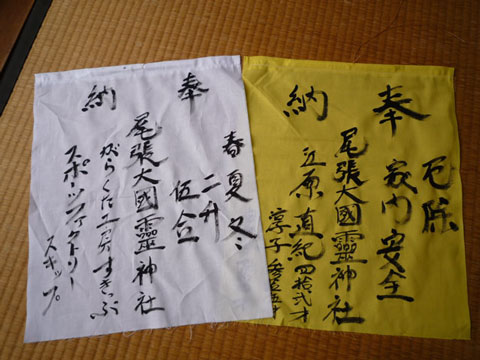 奉納
厄除
家内安全
尾張大國靈神社
直紀 四拾弐才
淳子
奉納
春夏冬
二升
伍合
尾張大國靈神社
がらくた工房すきっぷ
スポーツファクトリー
スキップ